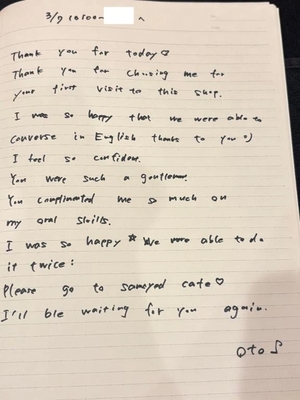 3/9 10:00~
Thank you for today♡
Thank you for choosing me for
your first visit to this shop.
I was so happy that we were able to
converse in English thanks to you :)
I feel so confident.
You were such a gentleman.
You complimented me so much on
my oral skills.
I was so happy☆ We were able to do
it twice:
Please go to cafe♡
I'll ble waiting for you again.